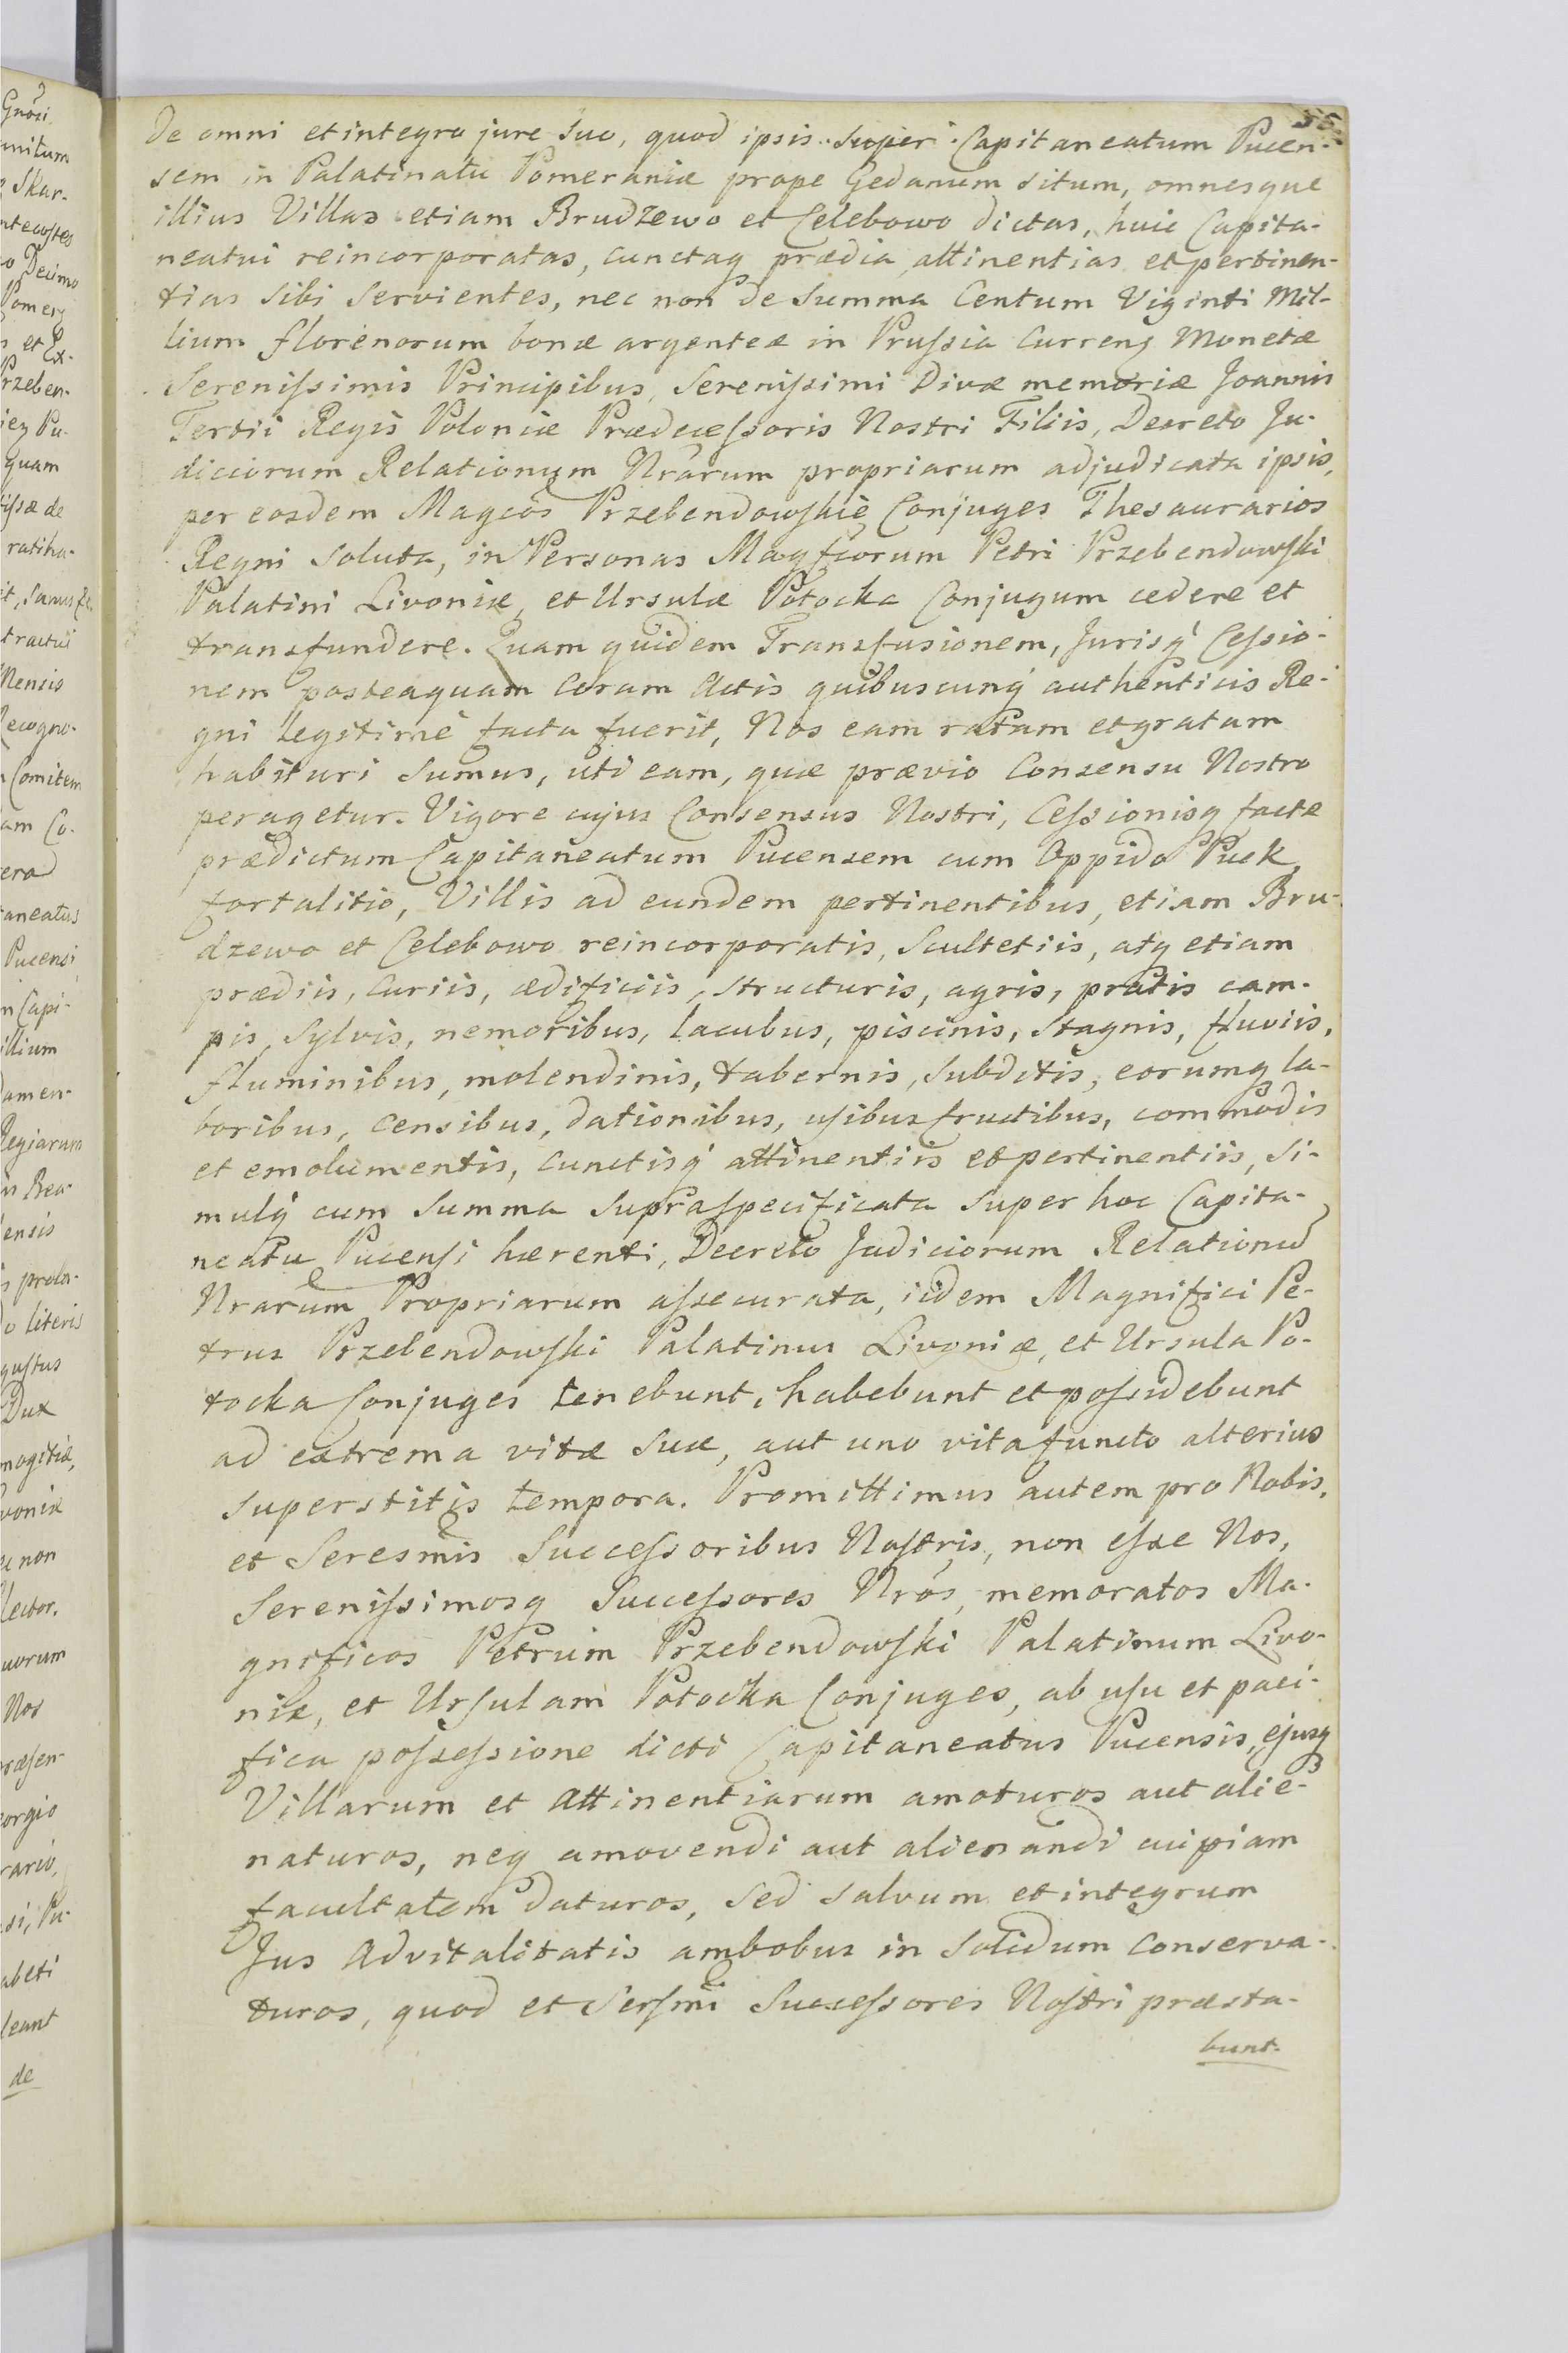 55.
De omni et integro jure Suo, quod ipsis super Capitaneatum Pucen-
sem in Palatinatu Pomeraniæ prope Gedanum situm, omnesque
illius Villas etiam Brudzewo et Celebowo dictas, huic Capita-
neatui reincorporatas, cunctaq prædia attinentias et pertinen-
tias sibi servientes, nec non de Summa Centum Viginti Mil-
lium florenorum bonæ argenteæ in Prussia Curreng Monetæ
Serenissimis Principibus, Serenissimi Divæ memoriæ Joannis
Tertii Regis Poloniæ Prædecessoris Nostri Filiis, Decreto Ju-
diciorum Relationum Nrarum propriarum adjudicata ipsis,
per eosdem Magcos Przebendowskie Conjuges Thesaurarios
Regni Soluta, in Personas Magfcorum Petri Przebendowski
Palatini Livoniæ, et Ursulæ Potocka Conjugum cedere et
transfundere. Quam quidem Transfusionem, Jurisq Cessio-
nem posteaquam Coram Actis quibuscunq authenticis Re-
gni Legitimè facta fuerit, Nos eam ratam et gratam
habituri Sumus, uti eam, quæ prævio Consensu Nostro
peragetur. Vigore cujus Consensus Nostri, Cessionisq factæ
prædictum Capitaneatum Pucensem cum Oppido Puck,
fortalitio, Villis ad eundem pertinentibus, etiam Bru-
dzewo et Celebowo reincorporatis, Scultetiis, atq etiam
prædiis, Curiis, ædificiis, structuris, agris, pratis cam-
pis, Sylvis, nemoribus, lacubus, piscinis, Stagnis, fluviis,
fluminibus, molendinis, tabernis, Subditis, eorumq la-
boribus, Censibus, dationibus, usibusfructibus, commodis
et emolumentis, cunctisq attinentiis et pertinentiis, si-
mulq cum Summa Supraspecificata super hoc Capita-
neatu Pucensi hærenti, Decreto Judiciorum Relationũ
Nrarum Propriarum assecurata, iidem Magnifici Pe-
trus Przebendowski Palatinus Livoniæ, et Ursula Po-
tocka Conjuges tenebunt, habebunt et possidebunt
ad extrema vitæ suæ, aut uno vitafuncto alterius
superstitis tempora. Promittimus autem pro Nobis,
et Seresmis Successoribus Nostris, non esse Nos,
Serenissimosq Successores Nros, memoratos Ma-
gnificos Petrum Przebendowski Palatinum Livo-
niæ, et Ursulam Potocka Conjuges, ab usu et paci-
fica possessione dicti Capitaneatus Pucensis, ejusq
Villarum et Attinentiarum amoturos aut alie-
naturos, neq amovendi aut alienandi cuipiam
facultatem daturos, Sed Salvum et integrum
Jus Advitalitatis ambobus in Solidum Conserva-
turos, quod et Sersmi Successores Nostri præsta-
bunt.